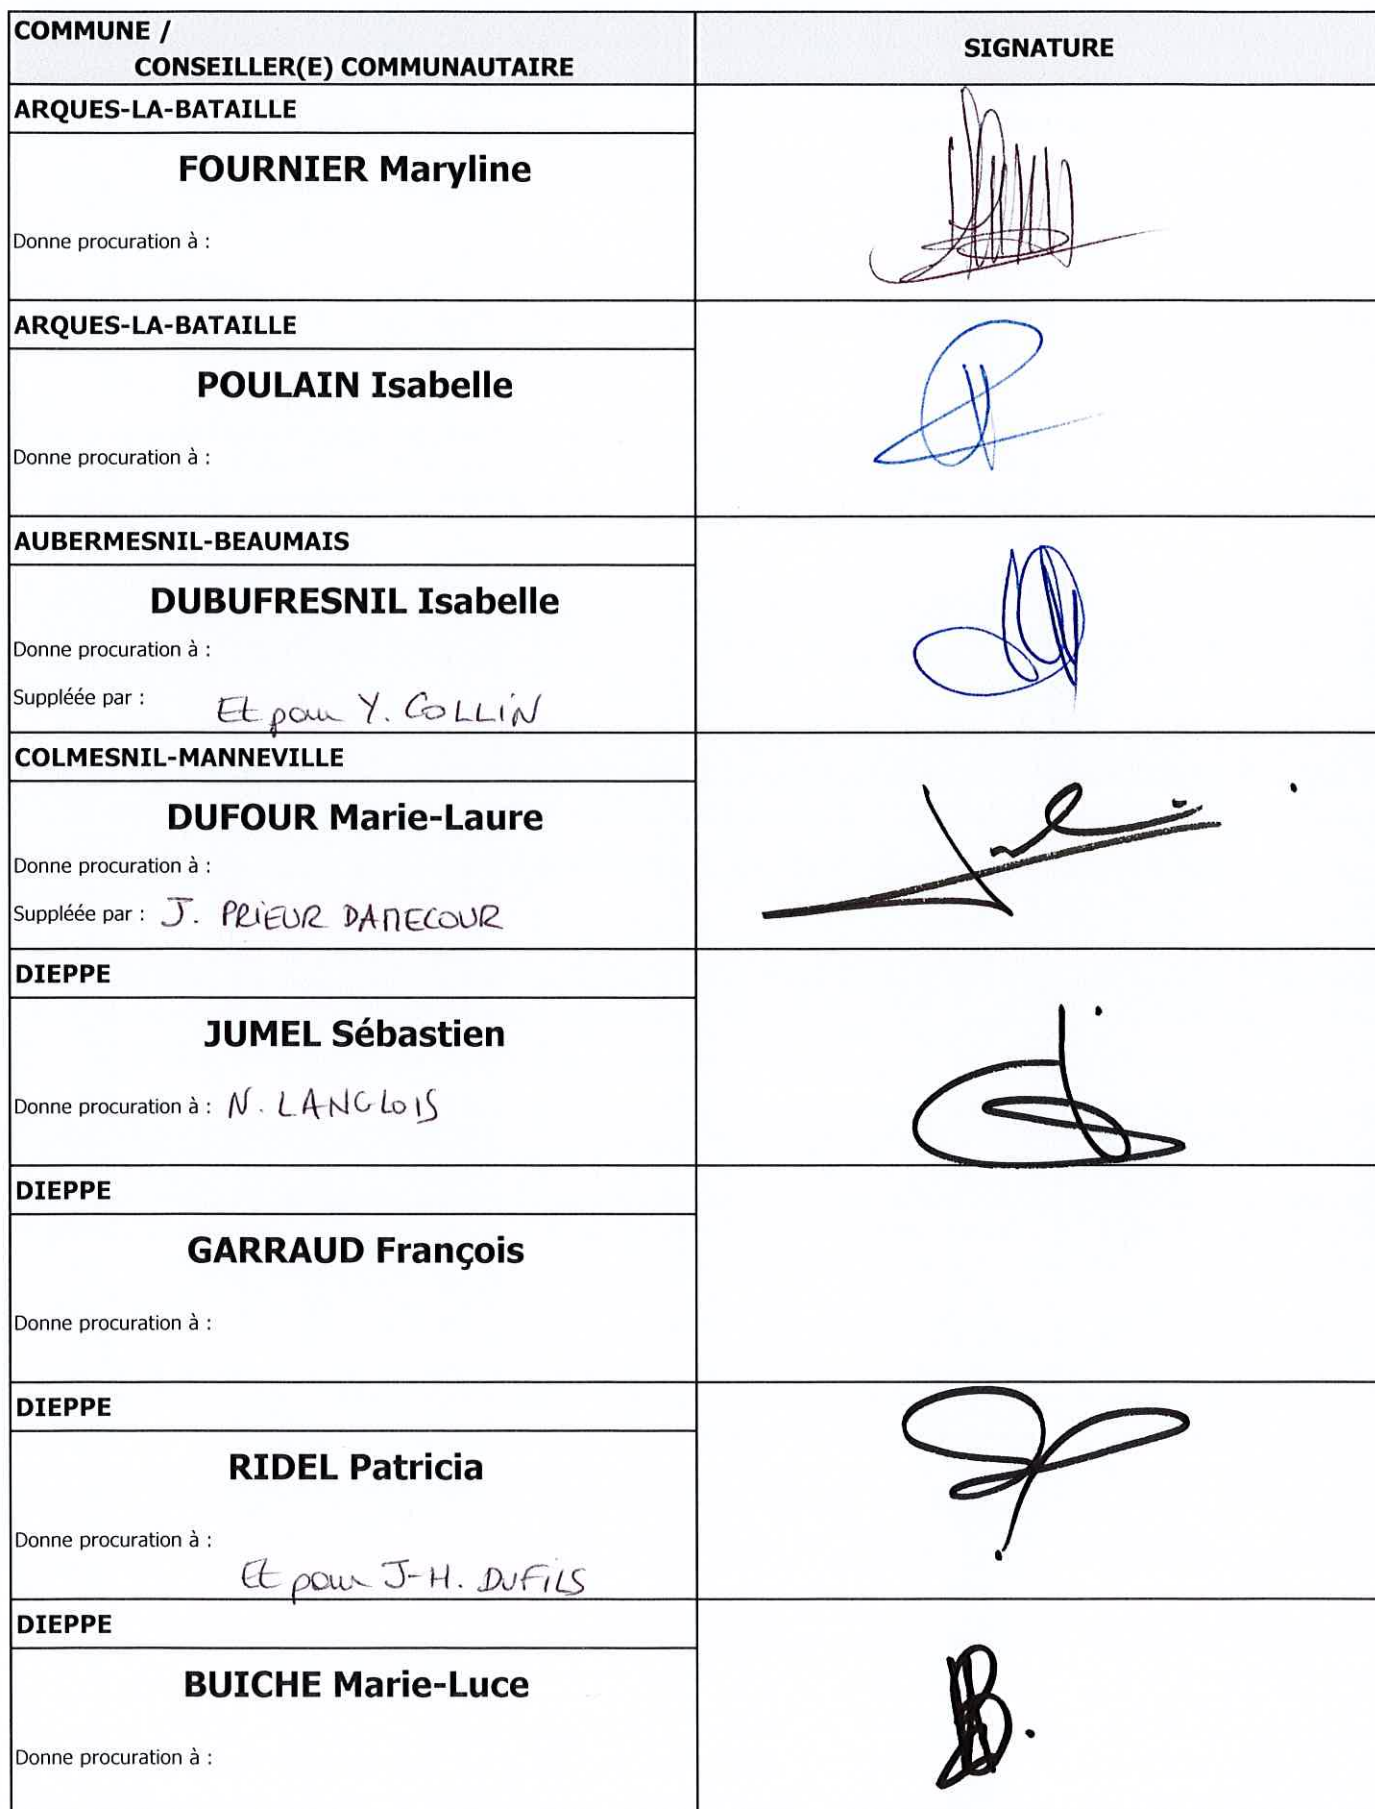 COMMUNE /
CONSEILLER(E) COMMUNAUTAIRE
SIGNATURE
ARQUES-LA-BATAILLE
FOURNIER Maryline
Donne procuration à :
ARQUES-LA-BATAILLE
POULAIN Isabelle
Donne procuration à :
AUBERMESNIL-BEAUMAIS
DUBUFRESNIL Isabelle
Donne procuration à :
Suppléée par :
Et pour Y. COLLIN
COLMESNIL-MANNEVILLE
DUFOUR Marie-Laure
Donne procuration à :
Suppléée par : J. PRIEUR DAMECOUR
DIEPPE
JUMEL Sébastien
Donne procuration à : N. LANGLOIS
DIEPPE
GARRAUD François
Donne procuration à :
DIEPPE
RIDEL Patricia
Donne procuration à :
Et pour J-H. DUFILS
DIEPPE
BUICHE Marie-Luce
Donne procuration à :